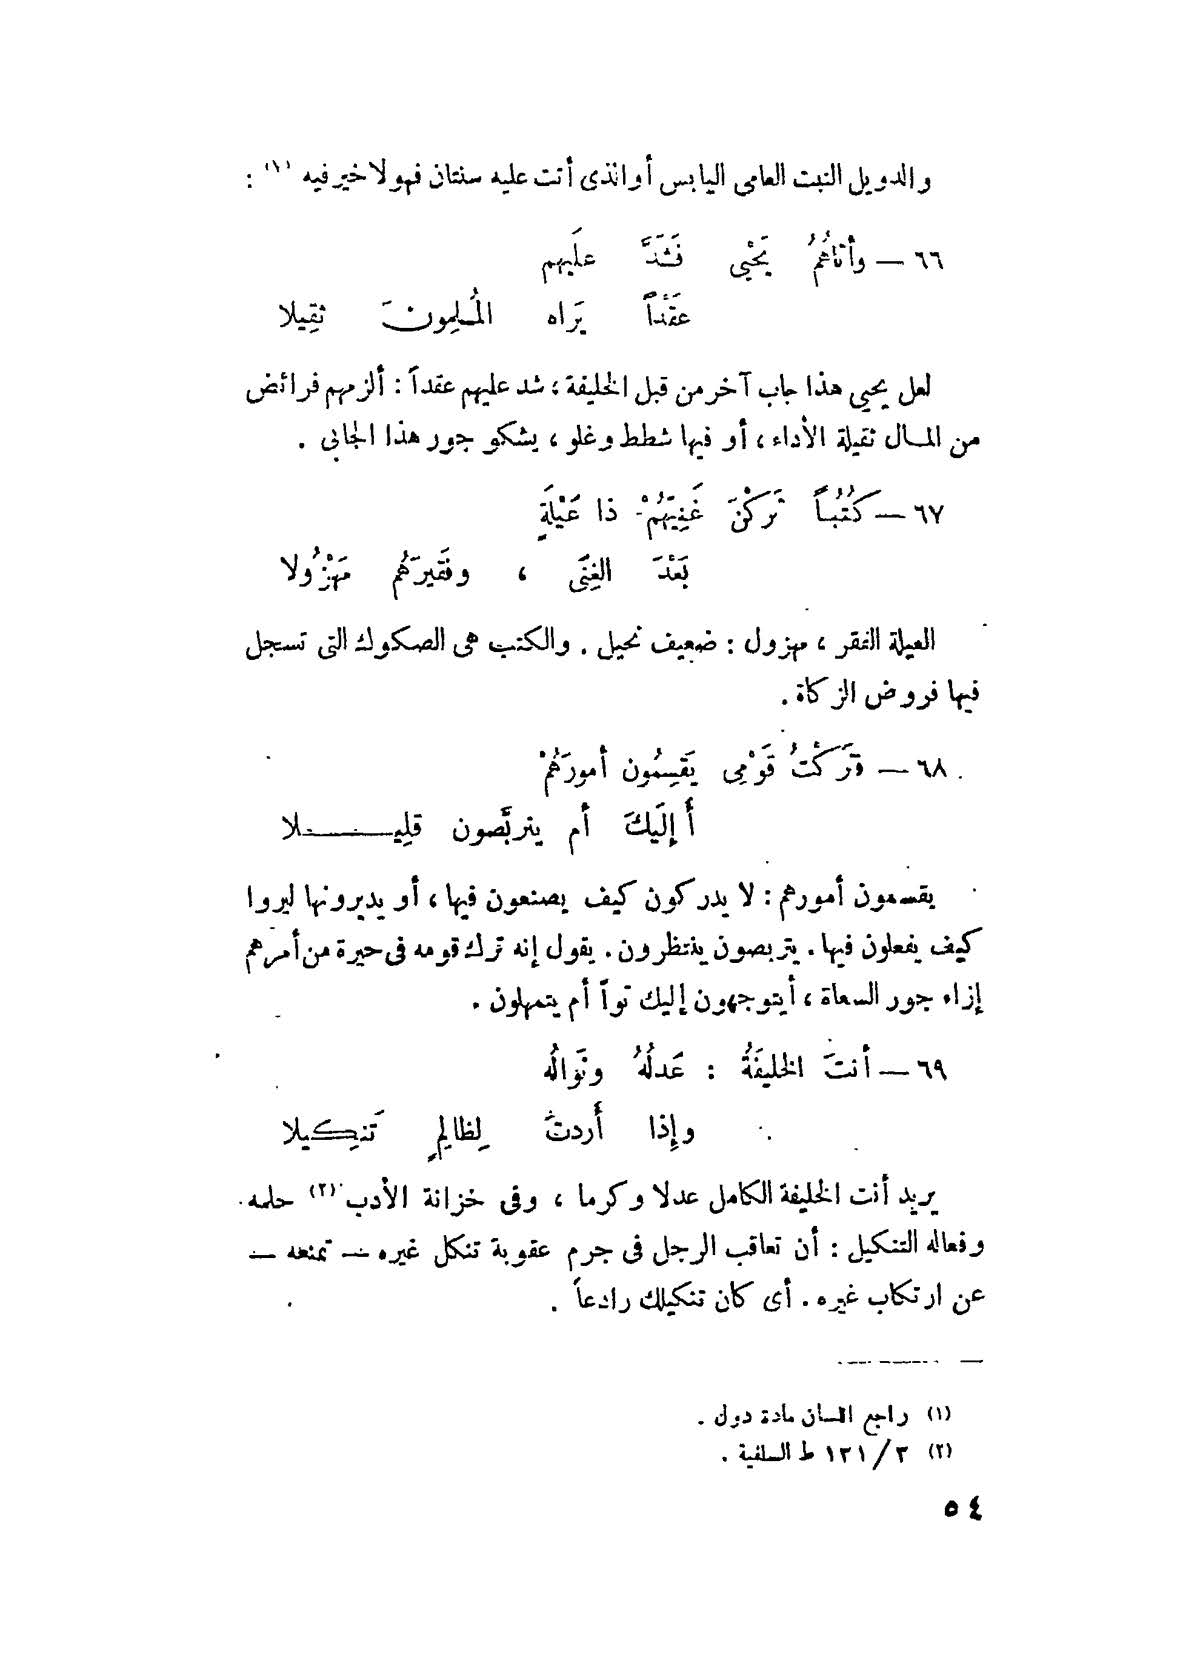 والدويل النبت العامى اليابس أو الذى أتت عليه سنتان فهو لا خير فيه (١) :
٦٦ — وأتاهُمُ يَحْيى فَشَدَّ علَيهم
عَقْداً يَراه المُسلِمونَ ثقِيلا
لعل يحيى هذا جاب آخر من قبل الخليفة ، شد عليهم عقداً : ألزمهم فرائض
من المال ثقيلة الأداء ، أو فيها شطط وغلو ، يشكو جور هذا الجابى .
٦٧ — كُتُباً تَركْنَ غَنِيَّهُمْ ذا عَيْلَةٍ
بَعْدَ الغِنَى ، وفَقيرَهُم مَهْزُولا
العيلة الفقر ، مهزول : ضعيف نحيل . والكتب هى الصكوك التى تسجل
فيها فروض الزكاة .
٦٨ — فترَكْتُ قَوْمِى يَقسِمُون أمورَهُمْ
أَ إلَيكَ أم يتربَّصون قلِيـــلا
يقسمون أمورهم : لا يدركون كيف يصنعون فيها ، أو يدبرونها ليروا
كيف يفعلون فيها . يتربصون ينتظرون . يقول إنه ترك قومه فى حيرة من أمرهم
إزاء جور السعاة ، أيتوجهون إليك تواً أم يتمهلون .
٦٩ — أنتَ الخليفَةُ : عَدلُهُ ونَوَالُه
وإِذا أَردتَ لِظالِمٍ تَنكِيلا
يريد أنت الخليفة الكامل عدلا وكرما ، وفى خزانة الأدب (٢) حلمه
وفعاله التنكيل : أن تعاقب الرجل فى جرم عقوبة تنكل غيره — تمنعه —
عن ارتكاب غيره . أى كان تنكيلك رادعاً .
(١) راجع اللسان مادة دول .
(٢) ٣/ ١٣١ ط السلفية .
٥٤